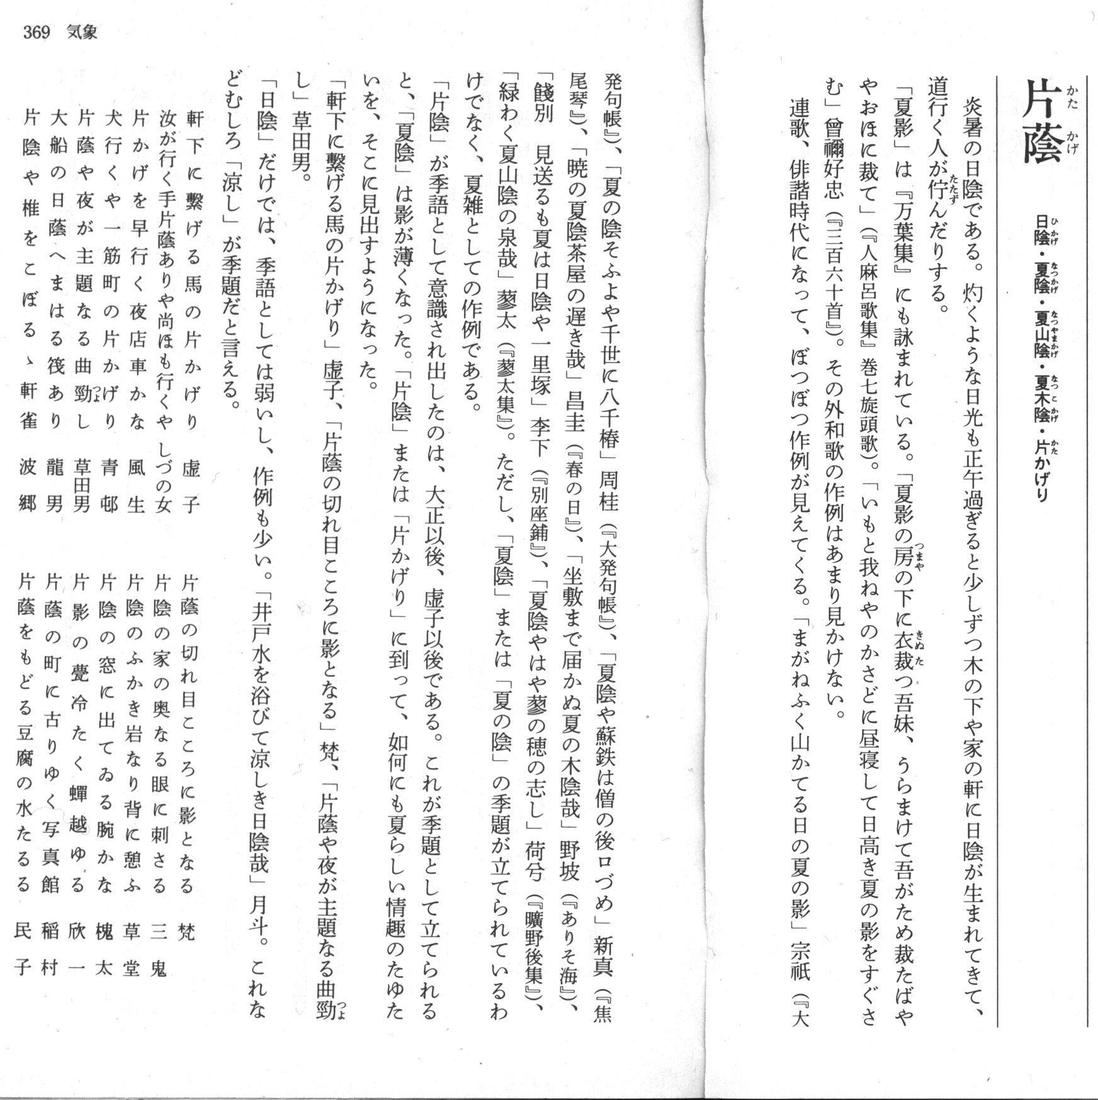 片蔭
かた かげ
日陰・夏陰・夏山陰・夏木陰・片かげり
ひかげ なつかげ なつやまかげ なつこかげ かた
炎暑の日陰である。灼くような日光も正午過ぎると少しずつ木の下や家の軒に日陰が生まれてきて、
道行く人が佇んだりする。
たたず
「夏影」は『万葉集』にも詠まれている。「夏影の房の下に衣裁つ吾妹、うらまけて吾がため裁たばや
つまや きぬた
やおほに裁て」（『人麻呂歌集』巻七旋頭歌）。「いもと我ねやのかさどに昼寝して日高き夏の影をすぐさ
む」曾禰好忠（『三百六十首』）。その外和歌の作例はあまり見かけない。
連歌、俳諧時代になって、ぼつぼつ作例が見えてくる。「まがねふく山かてる日の夏の影」宗祇（『大
発句帳』）、「夏の陰そふよや千世に八千椿」周桂（『大発句帳』）、「夏陰や蘇鉄は僧の後ロづめ」新真（『焦
尾琴』）、「暁の夏陰茶屋の遅き哉」昌圭（『春の日』）、「坐敷まで届かぬ夏の木陰哉」野坡（『ありそ海』）、
「餞別　見送るも夏は日陰や一里塚」李下（『別座鋪』）、「夏陰やはや蓼の穂の志し」荷兮（『曠野後集』）、
「緑わく夏山陰の泉哉」蓼太（『蓼太集』）。ただし、「夏陰」または「夏の陰」の季題が立てられているわ
けでなく、夏雑としての作例である。
「片陰」が季語として意識され出したのは、大正以後、虚子以後である。これが季題として立てられる
と、「夏陰」は影が薄くなった。「片陰」または「片かげり」に到って、如何にも夏らしい情趣のたゆた
いを、そこに見出すようになった。
「軒下に繋げる馬の片かげり」虚子、「片蔭の切れ目こころに影となる」梵、「片蔭や夜が主題なる曲勁
つよ
し」草田男。
「日陰」だけでは、季語としては弱いし、作例も少い。「井戸水を浴びて涼しき日陰哉」月斗。これな
どむしろ「涼し」が季題だと言える。
軒下に繋げる馬の片かげり　虚子
汝が行く手片蔭ありや尚ほも行くや　しづの女
片かげを早行く夜店車かな　風生
犬行くや一筋町の片かげり　青邨
片蔭や夜が主題なる曲勁し　草田男
つよ
大船の日蔭へまはる筏あり　龍男
片陰や椎をこぼるゝ軒雀　波郷
片蔭の切れ目こころに影となる　梵
片陰の家の奥なる眼に刺さる　三鬼
片陰のふかき岩なり背に憩ふ　草堂
片陰の窓に出てゐる腕かな　槐太
片影の甍冷たく蟬越ゆる　欣一
片蔭の町に古りゆく写真館　稲村
片蔭をもどる豆腐の水たるる　民子
369　気象